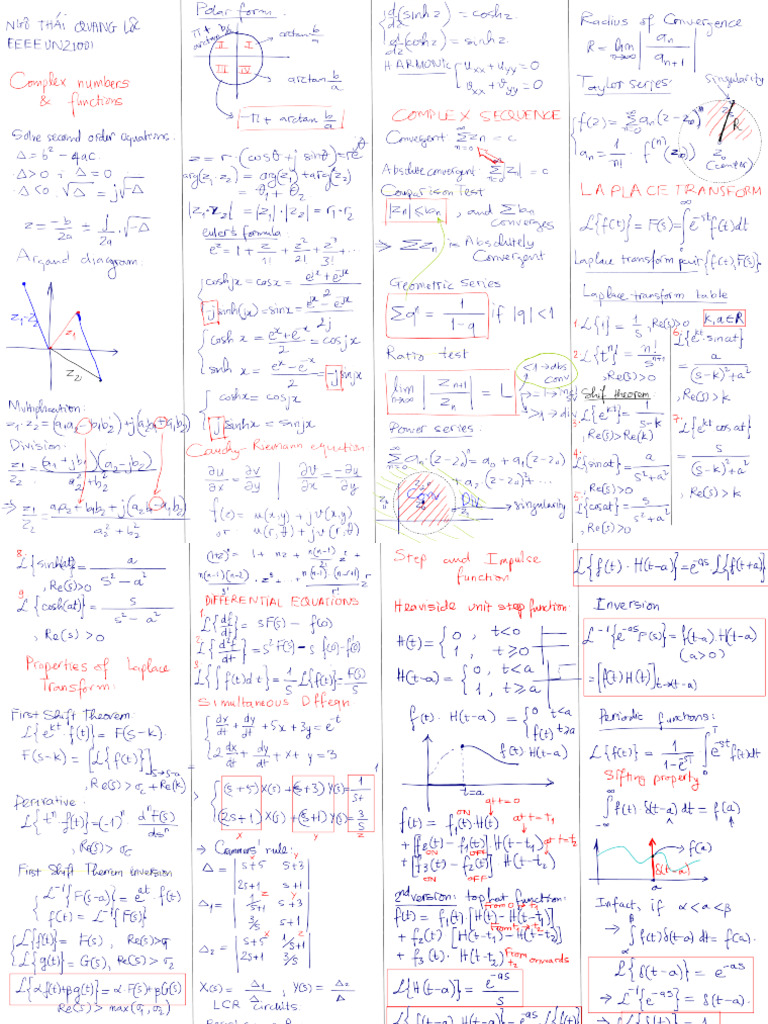 NGÔ THÁI QUANG LỘC
EEEEUN21001
Complex numbers
& functions
Solve second order equations.
Δ = b² - 4ac.
Δ > 0 ; Δ = 0
Δ < 0. √Δ = j√-Δ
z = -b/2a ± 1/2a √-Δ
Argand diagram:
z₁-z₂
z₁
z₂
Multiplication:
z₁·z₂ = (a₁a₂ - b₁b₂) + j(a₁b₂ + a₂b₁)
Division:
Polar form.
π + arctan b/a
arctan b/a
II
I
III
IV
arctan b/a
-π + arctan b/a
z = r·(cosθ + j sinθ) = re^jθ
arg(z₁·z₂) = arg(z₁) + arg(z₂)
= θ₁ + θ₂
|z₁·z₂| = |z₁|·|z₂| = r₁·r₂
euler's formula:
e^z = 1 + z/1! + z²/2! + z³/3! + ...
cosh jx = cosx = (e^jx + e^-jx)/2
-j sinh(jx) = sinx = (e^jx - e^-jx)/2j
cosh x = (e^x + e^-x)/2 = cos jx
sinh x = (e^x - e^-x)/2 = -j sin jx
cosh jx = cosx
sinh x = sin jx
Cauchy-Riemann equation
∂u/∂x = ∂v/∂y | ∂v/∂x = -∂u/∂y
f(z) = u(x,y) + jv(x,y)
or u(r,θ) + jv(r,θ)
d/dz (sinh z) = cosh z.
d/dz (cosh z) = sinh z.
HARMONIC
u_xx + u_yy = 0
v_xx + v_yy = 0
COMPLEX SEQUENCE
Convergent ∑ zn = c
n=0
Absolute convergent ∑ |zn| = c
n=0
Comparison Test
|zn| ≤ bn, and ∑ bn
converges
⇒ ∑ zn is Absolutely
Convergent
Geometric series
∑q^i = 1/(1-q) if |q| < 1
Ratio test
lim n→∞ |z_n+1 / z_n| = L
<1 → abs
conv
>1 → div
Power series.
∑ an(z-z₀)^n = a₀ + a₁(z-z₀)
+ a₂(z-z₀)² + ...
Conv
Div
singularity
z₀
Radius of Convergence
R = lim n→∞ |an / an+1|
Taylor series:
singularity
f(z) = ∑ an(z-z₀)^n
an = 1/n! · f^(n)(z₀)
R
z₀
(center)
LAPLACE TRANSFORM
L{f(t)} = F(s) = ∫₀^∞ e^-st f(t)dt
Laplace transform pair {f(t), F(s)}
Laplace transform table
1. L{1} = 1/s, Re(s)>0
k, a ∈ R
2. L{t^n} = n!/s^(n+1)
, Re(s)>0
Shift theorem
3. L{e^kt} = 1/(s-k)
, Re(s)>Re(k)
4. L{sin at} = a/(s²+a²)
, Re(s)>0
5. L{cos at} = s/(s²+a²)
, Re(s)>0
6. L{e^kt sin at}
a/((s-k)²+a²)
, Re(s)>k
7. L{e^kt cos at}
, Re(s)>k
8. L{sinh(at)} = a/(s²-a²)
, Re(s)>0
9. L{cosh(at)} = s/(s²-a²)
, Re(s)>0
Properties of Laplace
Transform:
First Shift Theorem
L{e^kt f(t)} = F(s-k)
F(s-k) = [L{f(t)}]
Derivative:
L{t^n f(t)} = (-1)^n d^n F(s)/ds^n
First Shift Theorem inversion
L⁻¹{F(s-a)} = e^at · f(t)
f(t) = L⁻¹{F(s)}
L{f(t)} = F(s), Re(s)>σ₁
L{g(t)} = G(s), Re(s)>σ₂
L{αf(t)+βg(t)} = αF(s) + βG(s)
Re(s) > max(σ₁, σ₂)
DIFFERENTIAL EQUATIONS
1. L{df/dt} = sF(s) - f(0)
2. L{d²f/dt} = s²F(s) - s f(0) - f'(0)
3. L{∫f(t)dt} = 1/s L{f(t)} = F(s)/s
Simultaneous Diffeqn
dx/dt + dy/dt + 5x + 3y = e^-t
2dx/dt + dy/dt + x + y = 3
(s+5) X(s) + (s+3) Y(s) = 1/s+1
(2s+1) X(s) + (s+1) Y(s) = 3/s
x
y
z
→ Cramers' rule:
Δ = | s+5 s+3 |
| 2s+1 s+1 |
Δ₁ = | 1/s+1 s+3 |
| 3/s s+1 |
Δ₂ = | s+5 1/s+1 |
| 2s+1 3/s |
X(s) = Δ₁/Δ, Y(s) = Δ₂/Δ
LCR circuits.
Step and Impulse
function
Heaviside unit step function:
H(t) = { 0, t<0
1, t≥0
H(t-a) = { 0, t<a
1, t≥a
f(t) · H(t-a) = { 0 t<a
f(t) t≥a
f(t) H(t-a)
t=a
at t=0
f(t) = f₁(t)·H(t)
at t=t₁
+ [f₂(t) - f₁(t)] H(t-t₁)
at t=t₂
+ [f₃(t) - f₂(t)] H(t-t₂)
ON
OFF
2nd version: top hat function:
From 0 → t₁
f(t) = f₁(t)·[H(t) - H(t-t₁)]
From t₁ → t₂
+ f₂(t) [H(t-t₁) - H(t-t₂)]
+ f₃(t) · H(t-t₂)
From t₂ onwards
L{H(t-a)} = e^-as/s
L{f(t)·H(t-a)} = e^-as L{f(t+a)}
Inversion
L⁻¹{e^-as F(s)} = f(t-a) H(t-a)
(a>0)
= [f(t)H(t)] t→(t-a)
Periodic functions:
L{f(t)} = 1/(1-e^-sT) ∫₀^T e^-st f(t)dt
Sifting property
∫ f(t)·δ(t-a)dt = f(a)
f(a)
δ(t-a)
a
Infact, if α<a<β
→ ∫ f(t)δ(t-a)dt = f(a).
L{δ(t-a)} = e^-as
→ L⁻¹{e^-as} = δ(t-a).